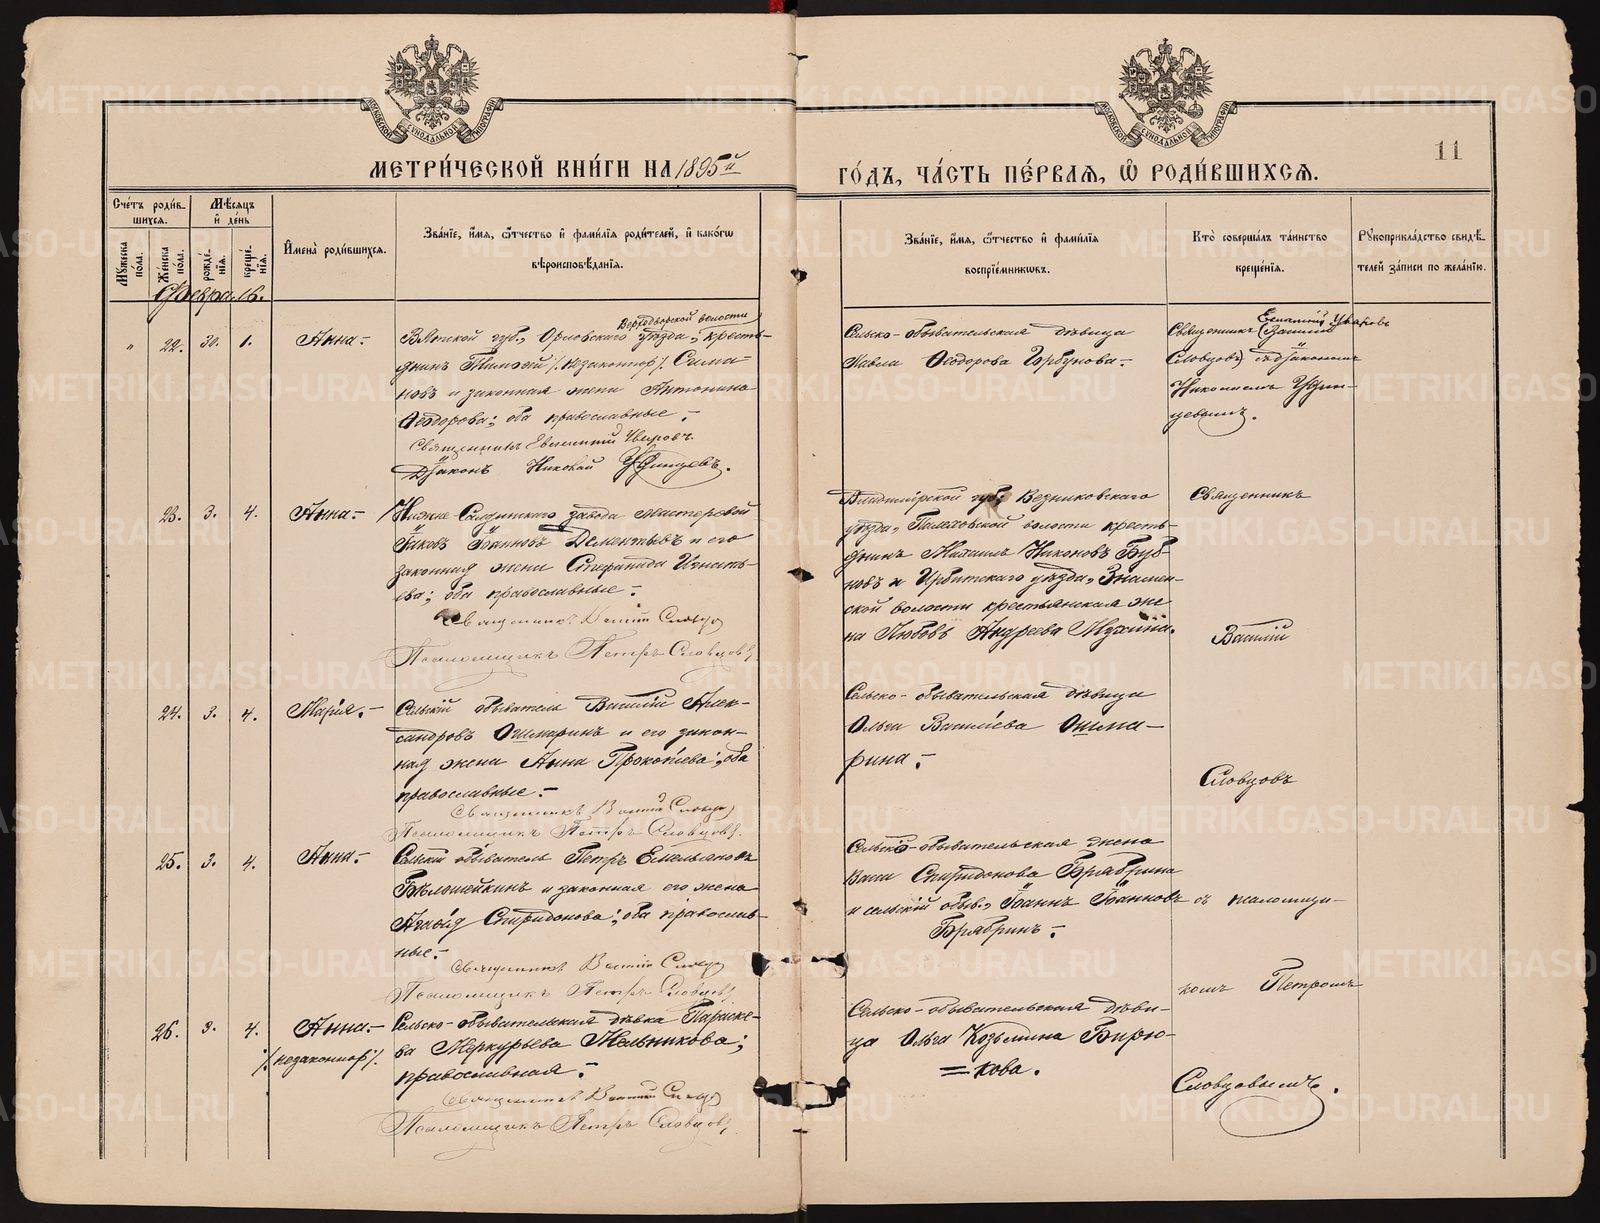 МЕТРИ́ЧЕСКОЙ КНИ́ГИ НА 1895й
ГО́ДЪ, ЧА́СТЬ ПЕ́РВАЯ, Ѽ РОДИ́ВШИХСЯ.
11
Сче́тъ роди́в-
шихся.
Мѣ́сяцъ
и҆ де́нь
Мꙋ́жеска по́ла.
Же́нска по́ла.
рожде́-
нїя.
креще́-
нїя.
И҆мена̀ роди́вшихся.
Зва́нїе, и҆́мя, ѻ҆́тчество и҆ фами́лїя роди́телей, и҆ како́гѡ
вѣроисповѣ́данїя.
Зва́нїе, и҆́мя, ѻ҆́тчество и҆ фами́лїя
воспрїе́мникѡвъ.
Кто̀ соверша́лъ та́инство
креще́нїя.
Рꙋкоприкла́дство свидѣ́-
телей за́писи по жела́нїю.
Февраль.
" 22. 30. 1. Анна.-
Верходворской волости
Вятской губ., Орловскаго уѣзда, кресть-
янинъ Тимофей /незаконнор/ Сима-
новъ и законная жена Антонина
Ѳеодорова; оба православные.-
Священникъ Евгений Уваровъ.
Дїаконъ Николай Удинцевъ.
Сельско-обывательская дѣвица
Павла Ѳеодорова Горбунова.-
Евгений Уваровъ
Священникъ (Василий
Словцовъ) съ дїакономъ
Николаемъ Удин-
цевымъ.
23. 3. 4. Анна.-
Нижне-Салдинскаго завода мастеровой
Іаковъ Іоанновъ Дементьевъ и его
законная жена Стефанида Игнать-
ева; оба православные.-
Священникъ Василий Словцовъ
Псаломщикъ Петръ Словцовъ
Владимірской губ. Вязниковскаго
уѣзда, Палеховской волости кресть-
янинъ Михаилъ Никоновъ Буб-
новъ и Ирбитскаго уѣзда, Знамен-
ской волости крестьянская же-
на Любовь Андреева Мухина.
Священникъ
Василий
24. 3. 4. Марія.-
Сельскій обыватель Василій Алек-
сандровъ Ошмаринъ и его закон-
ная жена Анна Прокопіева; оба
православные.-
Священникъ Василий Словцовъ
Псаломщикъ Петръ Словцовъ.
Сельско-обывательская дѣвица
Ольга Василіева Ошма-
рина.-
Словцовъ
25. 3. 4. Анна.-
Сельскій обыватель Петръ Емельяновъ
Бѣлошейкинъ и законная его жена
Агаѳія Спиридонова; оба православ-
ные.-
Священникъ Василий Словцовъ
Псаломщикъ Петръ Словцовъ.
Сельско-обывательская жена
Васса Спиридонова Брябрина
и сельскій обыв., Іоаннъ Іоанновъ
Брябринъ.-
съ псаломщи-
комъ Петромъ
26. 3. 4. Анна.-
/незаконнор/.
Сельско-обывательская дѣвка Параске-
ва Меркурьева Мельникова;
православная.-
Священникъ Василий Словцовъ
Псаломщикъ Петръ Словцовъ.
Сельско-обывательская дѣви-
ца Ольга Козьмина Бирю-
=кова.
Словцовымъ.